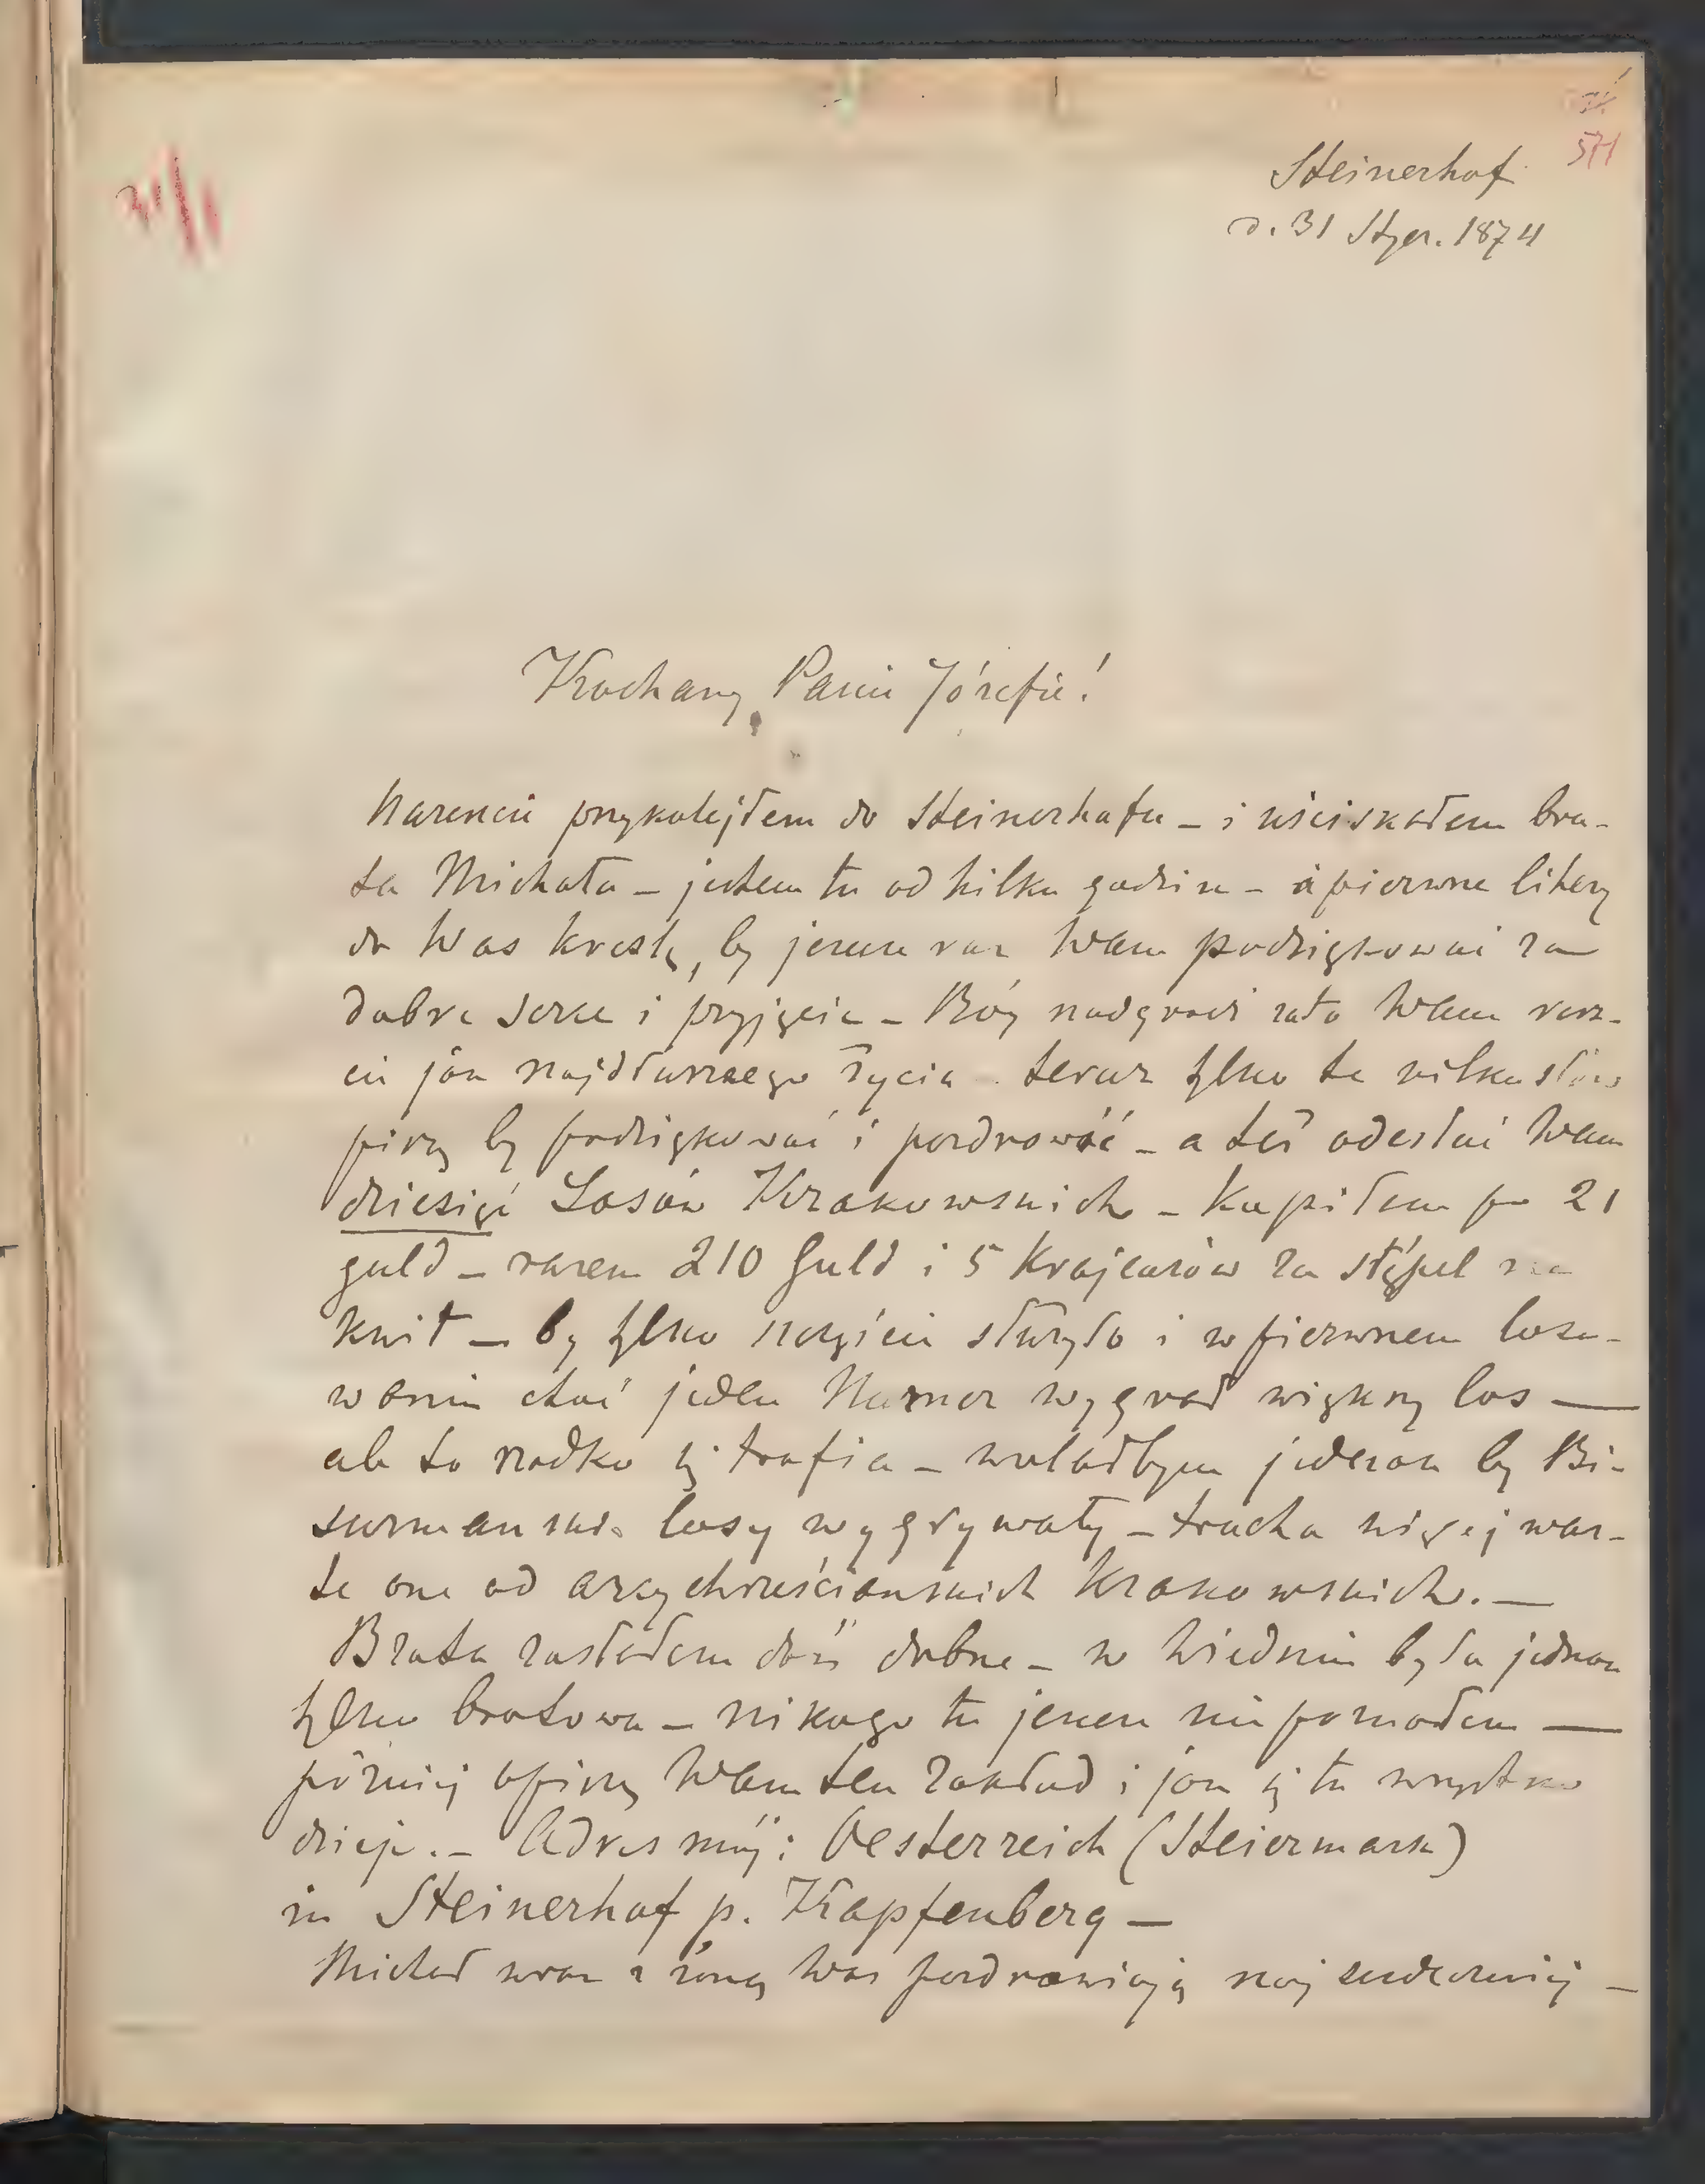 571
31/1
Steinerhof
d. 31 Stycz. 1874
Kochany Panie Józefie!
Nareszcie przykolejłem do Steinerhofu – i uściskałem bra-
ta Michała – jestem tu od kilku godzin – a pierwsze litery
do Was kreślę, by jeszcze raz Wam podziękować za
dobre serce i przyjęcie – Bóg nadgrodzi zato Wam
jak najdłuższego życia – teraz tylko te kilka słów
piszę by podziękować i pozdrowić – a też odesłać Wam
dziesięć Losów Krakowskich – kupiłem po 21
guld – razem 210 Guld i 5 Krajcarów za stępel na
kwit – by tylko szczęście służyło i w pierwszem loso-
waniu choć jeden Numer wygrał większy los —
ale to rzadko się trafia – wolałbym jednak by Bi-
surmańskie losy wygrywały – trocha więcej war-
te one od arcychrześciańskich Krakowskich. —
Brata zastałem dość dobrze – w Wiedniu była jednak
tylko bratowa – nikogo tu jeszcze nie poznałem —
później opiszę Wam ten zakład i jak się tu wszystko
dzieje. – Adres mój: Oesterreich (Steiermark)
in Steinerhof p. Kapfenberg —
Michał wraz z żoną Was pozdrawiają najserdeczniej —